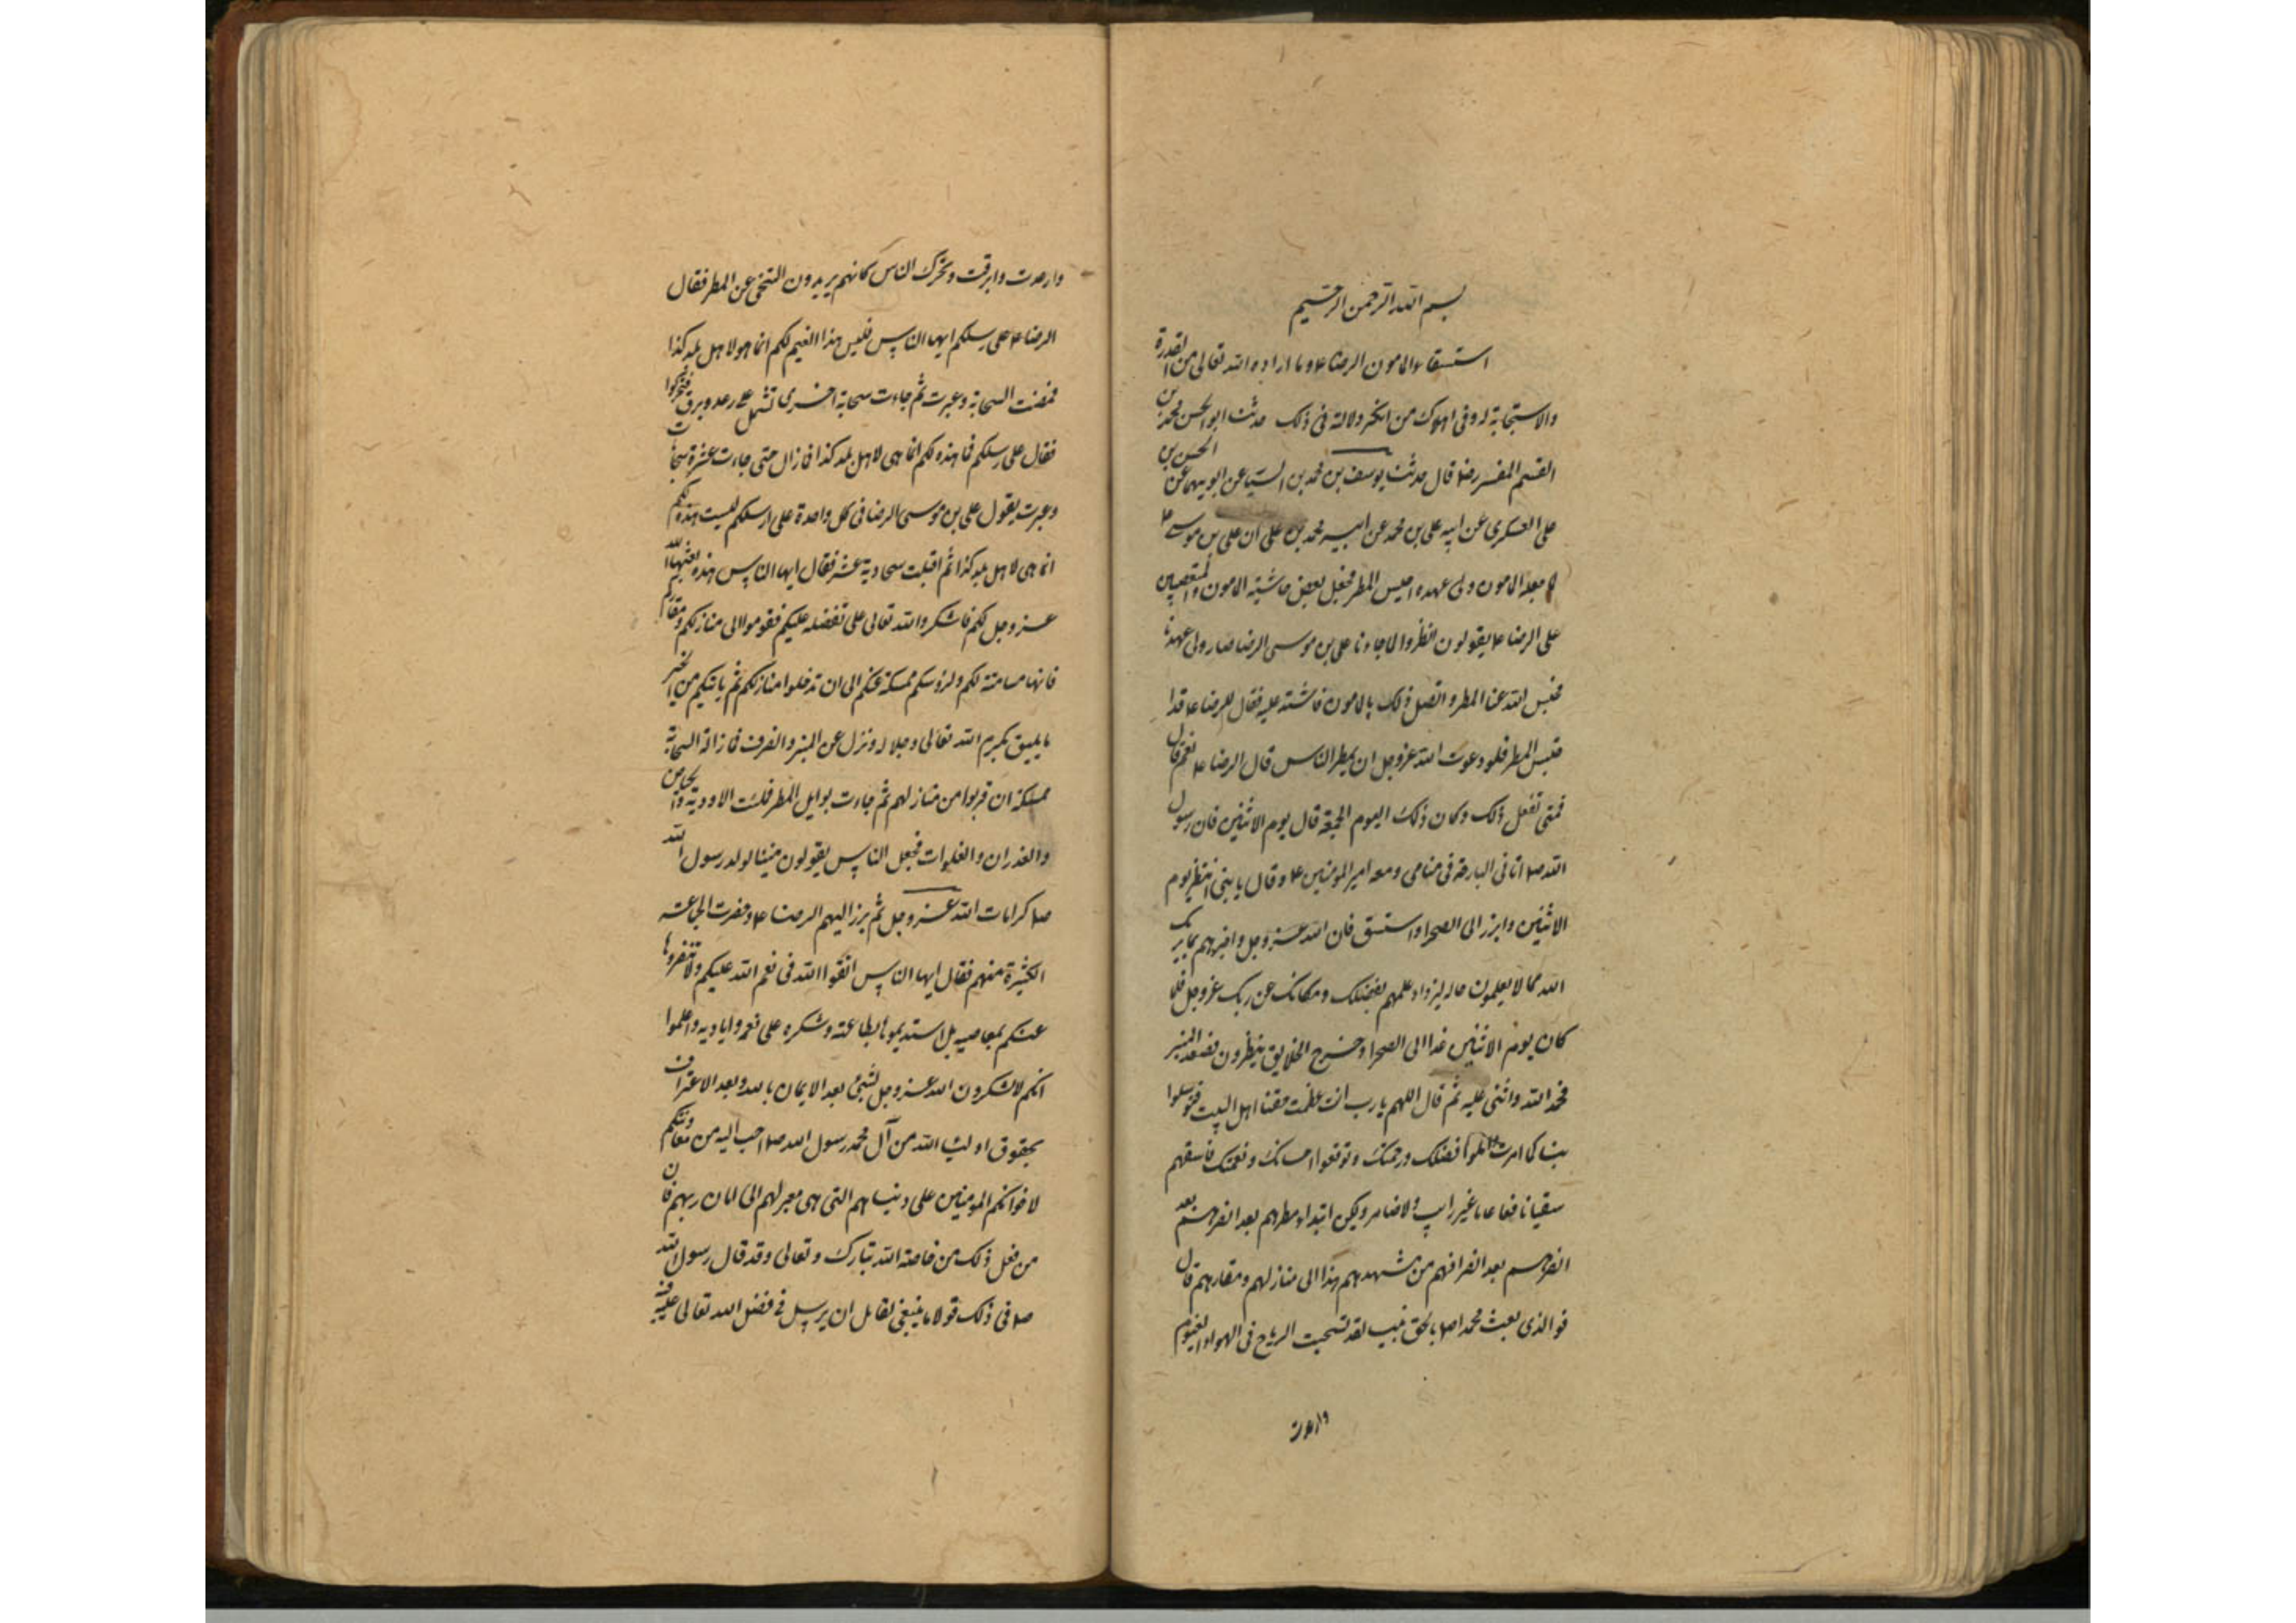 بسم الله الرحمن الرحيم
استسقاء المامون الرضا ع وما اراده الله تعالى من القدرة
والاستجابة له وفى اهلاك من انكر دلالة فى ذلك حدثنا ابو الحسن محمد بن
القسم المفسر رضا قال حدثنا يوسف بن محمد بن السيا عن ابويهما عن الحسن بن
على العسكرى عن ابيه على بن محمد عن ابيه محمد بن على ان على بن موسى ع
لما جعله المامون ولى عهده احبس المطر فجعل بعض حاشية المامون والمتعصبين
على الرضا ع يقولون انظروا لما جاءنا على بن موسى الرضا صار ولى عهدنا
فحبس الله عنا المطر واتصل ذلك بالمامون فاشتد عليه فقال للرضا ع قد ا
حتبس المطر فلو دعوت الله عزوجل ان يمطر الناس قال الرضا ع نعم قال
فمتى تفعل ذلك وكان ذلك اليوم الجمعة قال يوم الاثنين فان رسول
الله صلا اتانى البارحة فى منامى ومعه امير المومنين ع وقال يا بنى انتظر يوم
الاثنين وابرز الى الصحرا واستسق فان الله عز وجل واخبرهم بما يريك
الله مما لا يعلمون حاله ليزداد علمهم بفضلك ومكانك عن ربك عزوجل فلما
كان يوم الاثنين غدا الى الصحرا وخرج الخلايق ينظرون فصعد المنبر
فحمد الله واثنى عليه ثم قال اللهم يا رب انت عظمت حقنا اهل البيت فتوسلوا
بنا كما امرت واملوا فضلك ورحمتك وتوقعوا احسانك ونعمتك فاسقهم
سقيا نافعا عاما غير رايب ولا ضاير وليكن ابتداء مطرهم بعد انصرافهم بعد
انصرافهم بعد انصرافهم من مشهدهم هذا الى منازلهم ومقارهم قال
فوالذى بعث محمدا صلا بالحق نبيا لقد نسجت الرياح فى الهواء الغيوم
وارعدت
وارعدت وابرقت وتحرك الناس كانهم يريدون التنحى عن المطر فقال
الرضا ع على رسلكم ايها الناس فليس هذا الغيم لكم انما هو لاهل بلد كذا
فمضت السحابة وعبرت ثم جاءت سحابة اخرى تشتمل على رعد وبرق فتحركوا
فقال على رسلكم فما هذه لكم انما هى لاهل بلد كذا فما زال حتى جاءت عشرة سحابات
وعبرت يقول على بن موسى الرضا فى كل واحدة على رسلكم ليست هذه لكم
انما هى لاهل بلد كذا ثم اقبلت سحابة حادية عشر فقال ايها الناس هذه بعثها الله
عز وجل لكم فاشكروا الله تعالى على تفضله عليكم فقوموا الى منازلكم ومقاركم
فانها مسامتة لكم ولرؤسكم ممسكة عنكم الى ان تدخلوا منازلكم ثم ياتيكم من الخير
ما يليق بكرم الله تعالى وجلاله ونزل عن المنبر وانصرف فما زالة السحابة
ممسكة ان قربوا من منازلهم ثم جاءت بوابل المطر فملئت الاودية والحياض
والغدران والفلوات فجعل الناس يقولون هنيئا لولد رسول الله
صلا كرامات الله عز وجل ثم برز اليهم الرضا ع وحضرت الجماعة
الكثيرة منهم فقال ايها الناس اتقوا الله فى نعم الله عليكم ولا تنفروها
عنكم بمعاصيه بل استديموها بطاعته وشكره على نعمه واياديه واعلموا
انكم لا تشكرون الله عز وجل بشئ بعد الايمان بالله وبعد الاعتراف
بحقوق اولياء الله من آل محمد رسول الله صلا احب اليه من معاونتكم
لاخوانكم المومنين على دنياهم التى هى معبر لهم الى امان ربهم فان
من فعل ذلك من خاصة الله تبارك وتعالى وقد قال رسول الله
صلا فى ذلك قولا ما ينبغى لقائل ان يرسل فى فضل الله تعالى عليه فيه